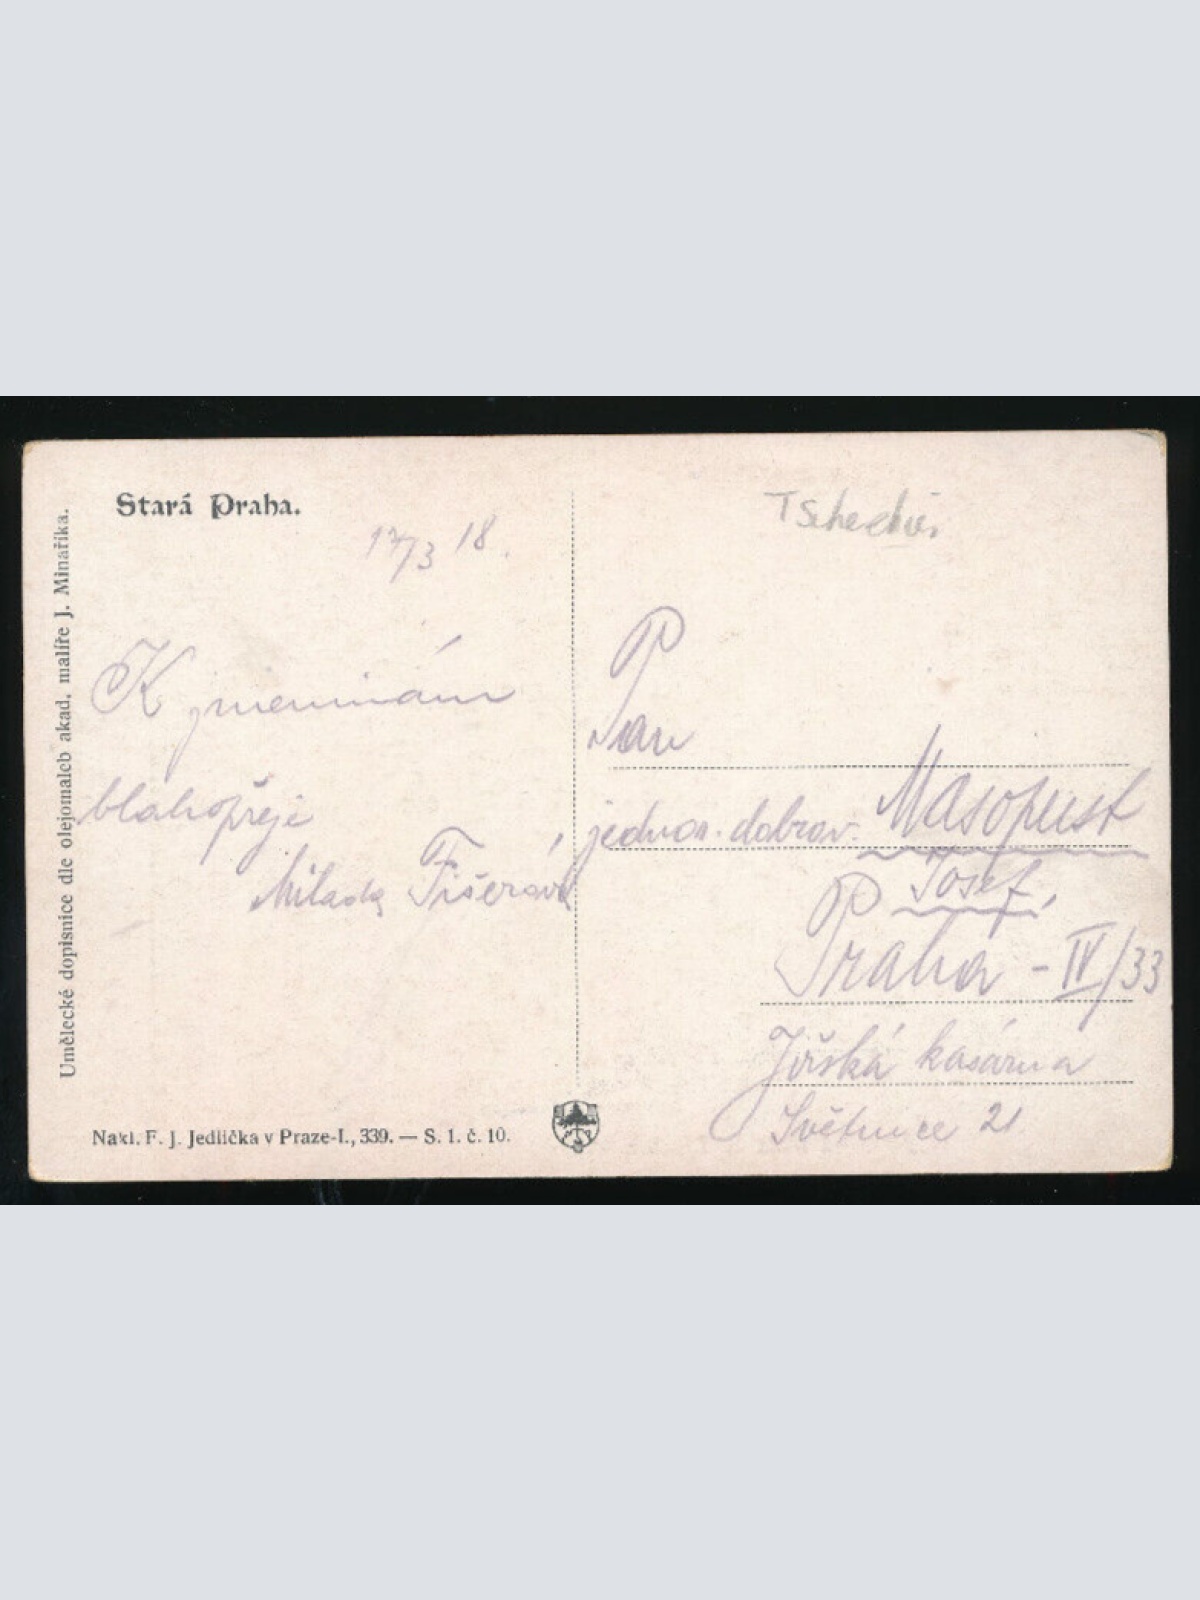 Stará Praha.
17/3 18.
K jmeninám
blahopřeje
Milada Fišerová
Umělecké dopisnice dle olejomaleb akad. malíře J. Minaříka.
Nakl. F. J. Jedlička v Praze-I., 339. — S. 1. č. 10.
Pan
jednor. dobrov. Masopust
Josef,
Praha - IV/33
Jiřská kasárna
Světnice 21